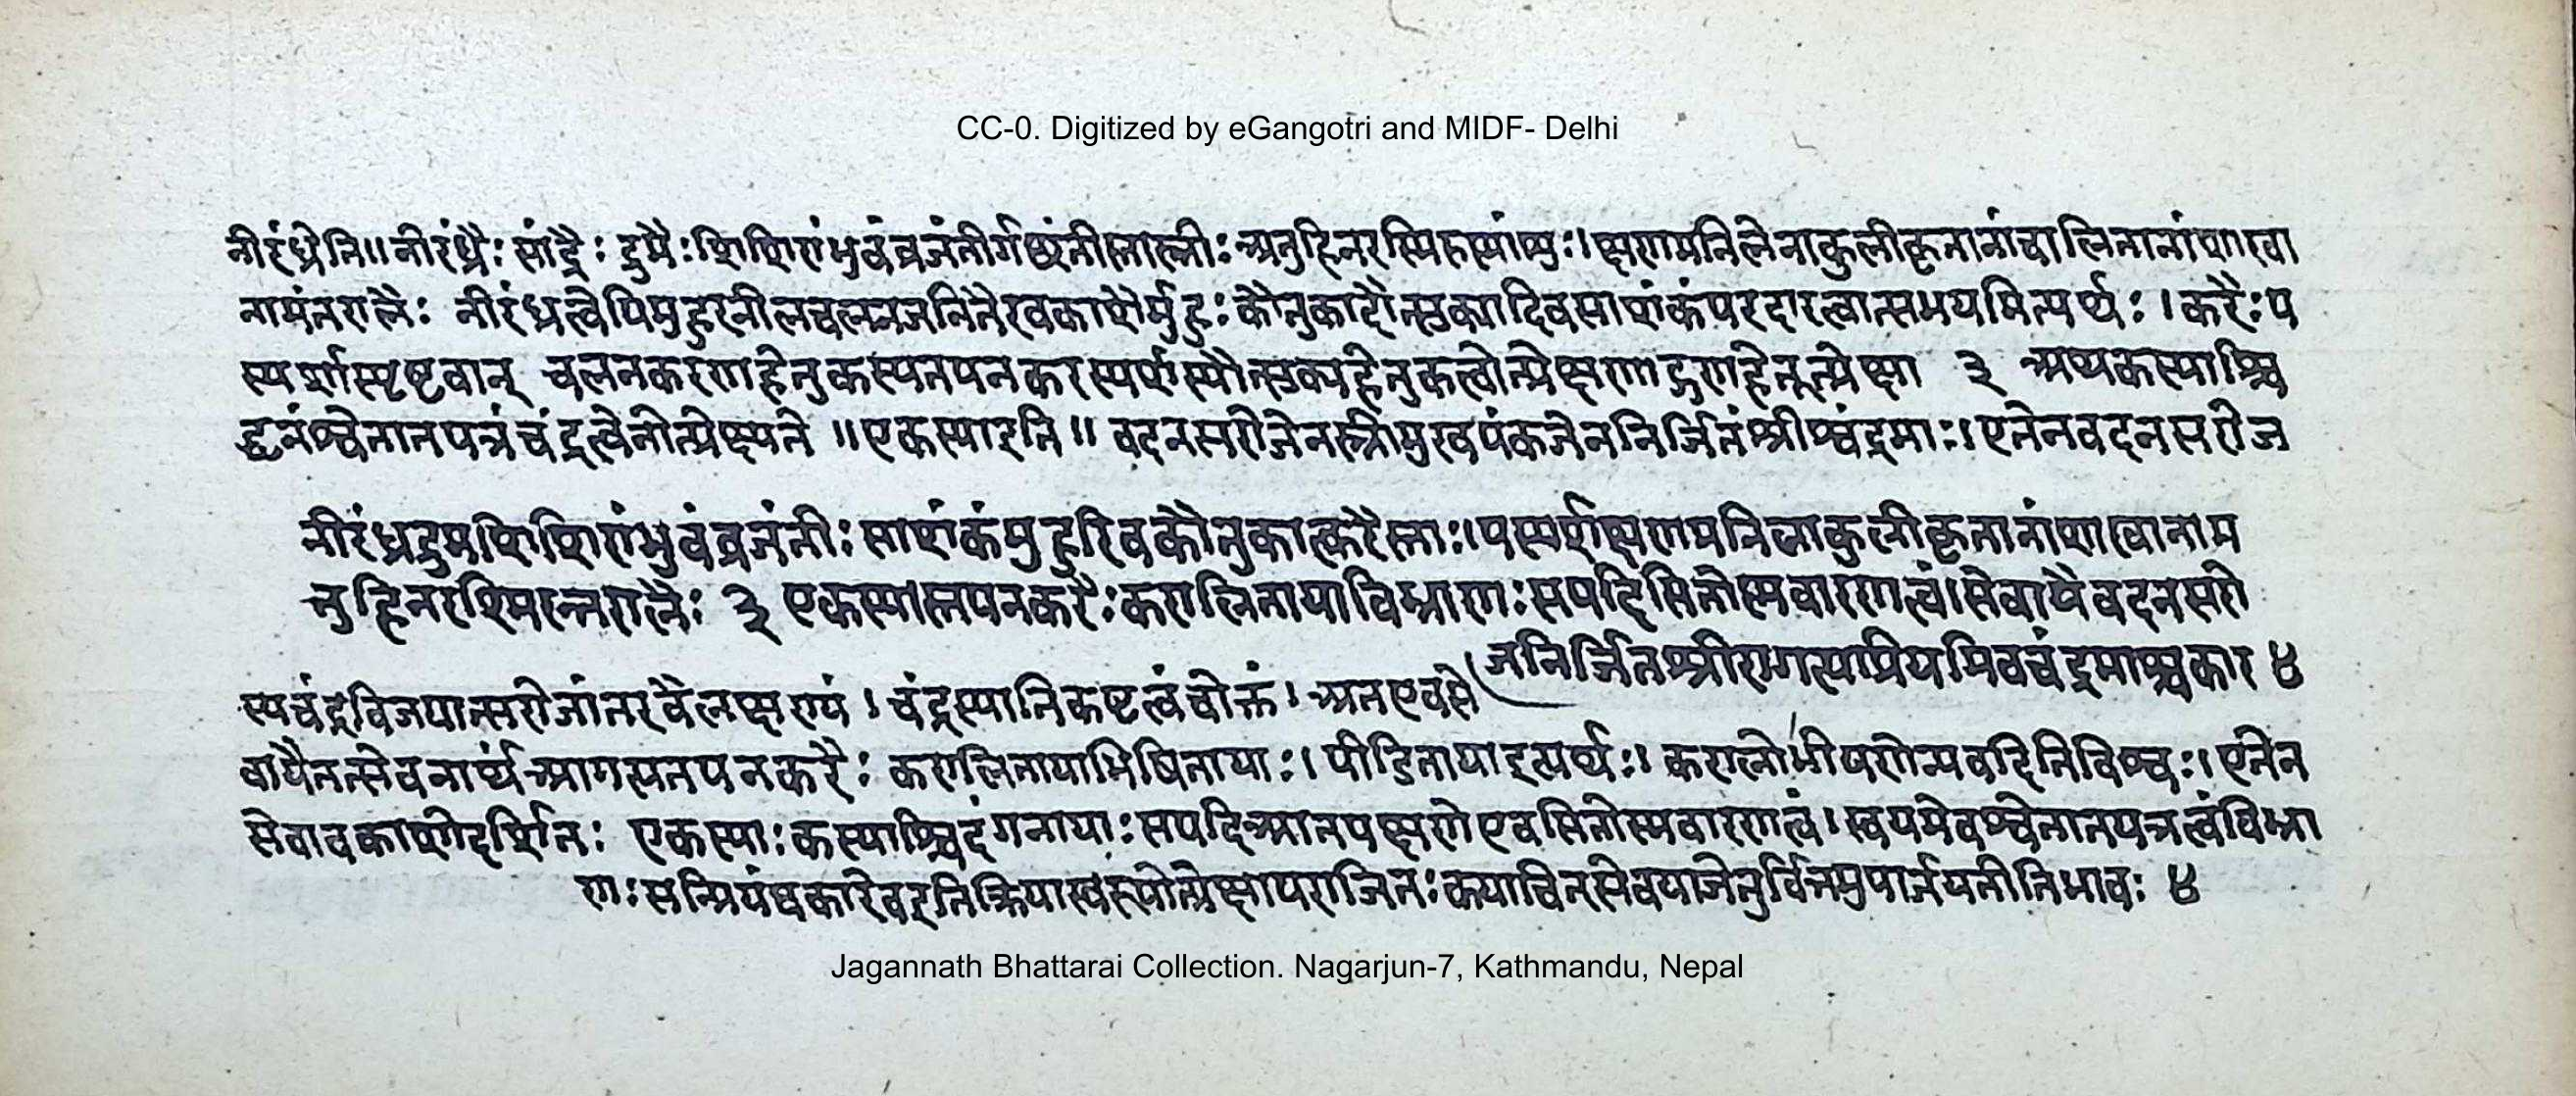 CC-0. Digitized by eGangotri and MIDF- Delhi
नीरंध्रेति॥ नीरंध्रैः सांद्रैः द्रुमैः शिशिरांभुवंव्रजंतीर्गछंतीस्तास्त्रीः अतुहिनरस्मिरुस्मांषुः। क्षणमनिलेनाकुलीकृतानांचालितानांशाखा
नामंतरालैः नीरंध्रत्वेपिमुहुरनीलचलनजनितैरवकाशैर्मुहुः कौतुकादौत्सुक्यादिवसाशंकंपरदारत्वात्सभयमित्यर्थः। करैःप
स्पर्शास्पृष्टवान् चलनकरणहेतुकस्यतपनकरस्पर्शस्यौत्सुक्यहेतुकत्वोत्प्रेक्षणाद्गुणहेतूत्प्रेक्षा ३ अथकस्याश्चि
द्धृतंश्वेतातपत्रंचंद्रत्वेनोत्प्रेक्ष्यते ॥एकस्याइति॥ वदनसरोजेनस्त्रीमुखपंकजेननिर्जितंश्रीश्चंद्रमाः। एतेनवदनसरोज
नीरंध्रद्रुमशिशिरांभुवंव्रजंतीः साशंकंमुहुरिवकौतुकात्करैस्ताः। पस्पर्शक्षणमनिलाकुलीकृतानांशाखानाम
तुहिनरश्मिरन्तरालैः ३ एकस्यास्तपनकरैःकरालितायाविभ्राणःसपदिसितोस्मवारणत्वं। सेवायैवदनसरो
जनिर्जितश्रीरागत्यप्रियमिवचंद्रमाश्चकार ४
स्यचंद्रविजयात्सरोजांतरवैलक्षण्यं। चंद्रस्यानिकष्टत्वंचोक्तं। अतएवसे
वायैतत्सेवनार्थंआगत्यतपनकरैः करालितायाभिषितायाः। पीडितायाइत्यर्थः। करालोभीषणेन्यवदितिविश्वः। एतेन
सेवावकाशोदर्शितः एकस्याःकस्याश्चिदंगनायाःसपदिआतपक्षणेएवसितोस्मवारणत्वं। स्वयमेवश्वेतातपत्रत्वंविभ्रा
णःसन्प्रियंचकारेवइतिक्रियास्वरूपोत्प्रेक्षापराजितःकयाचित्सेवयाजेतुर्चित्तमुपार्जयतीतिभावः ४
Jagannath Bhattarai Collection. Nagarjun-7, Kathmandu, Nepal